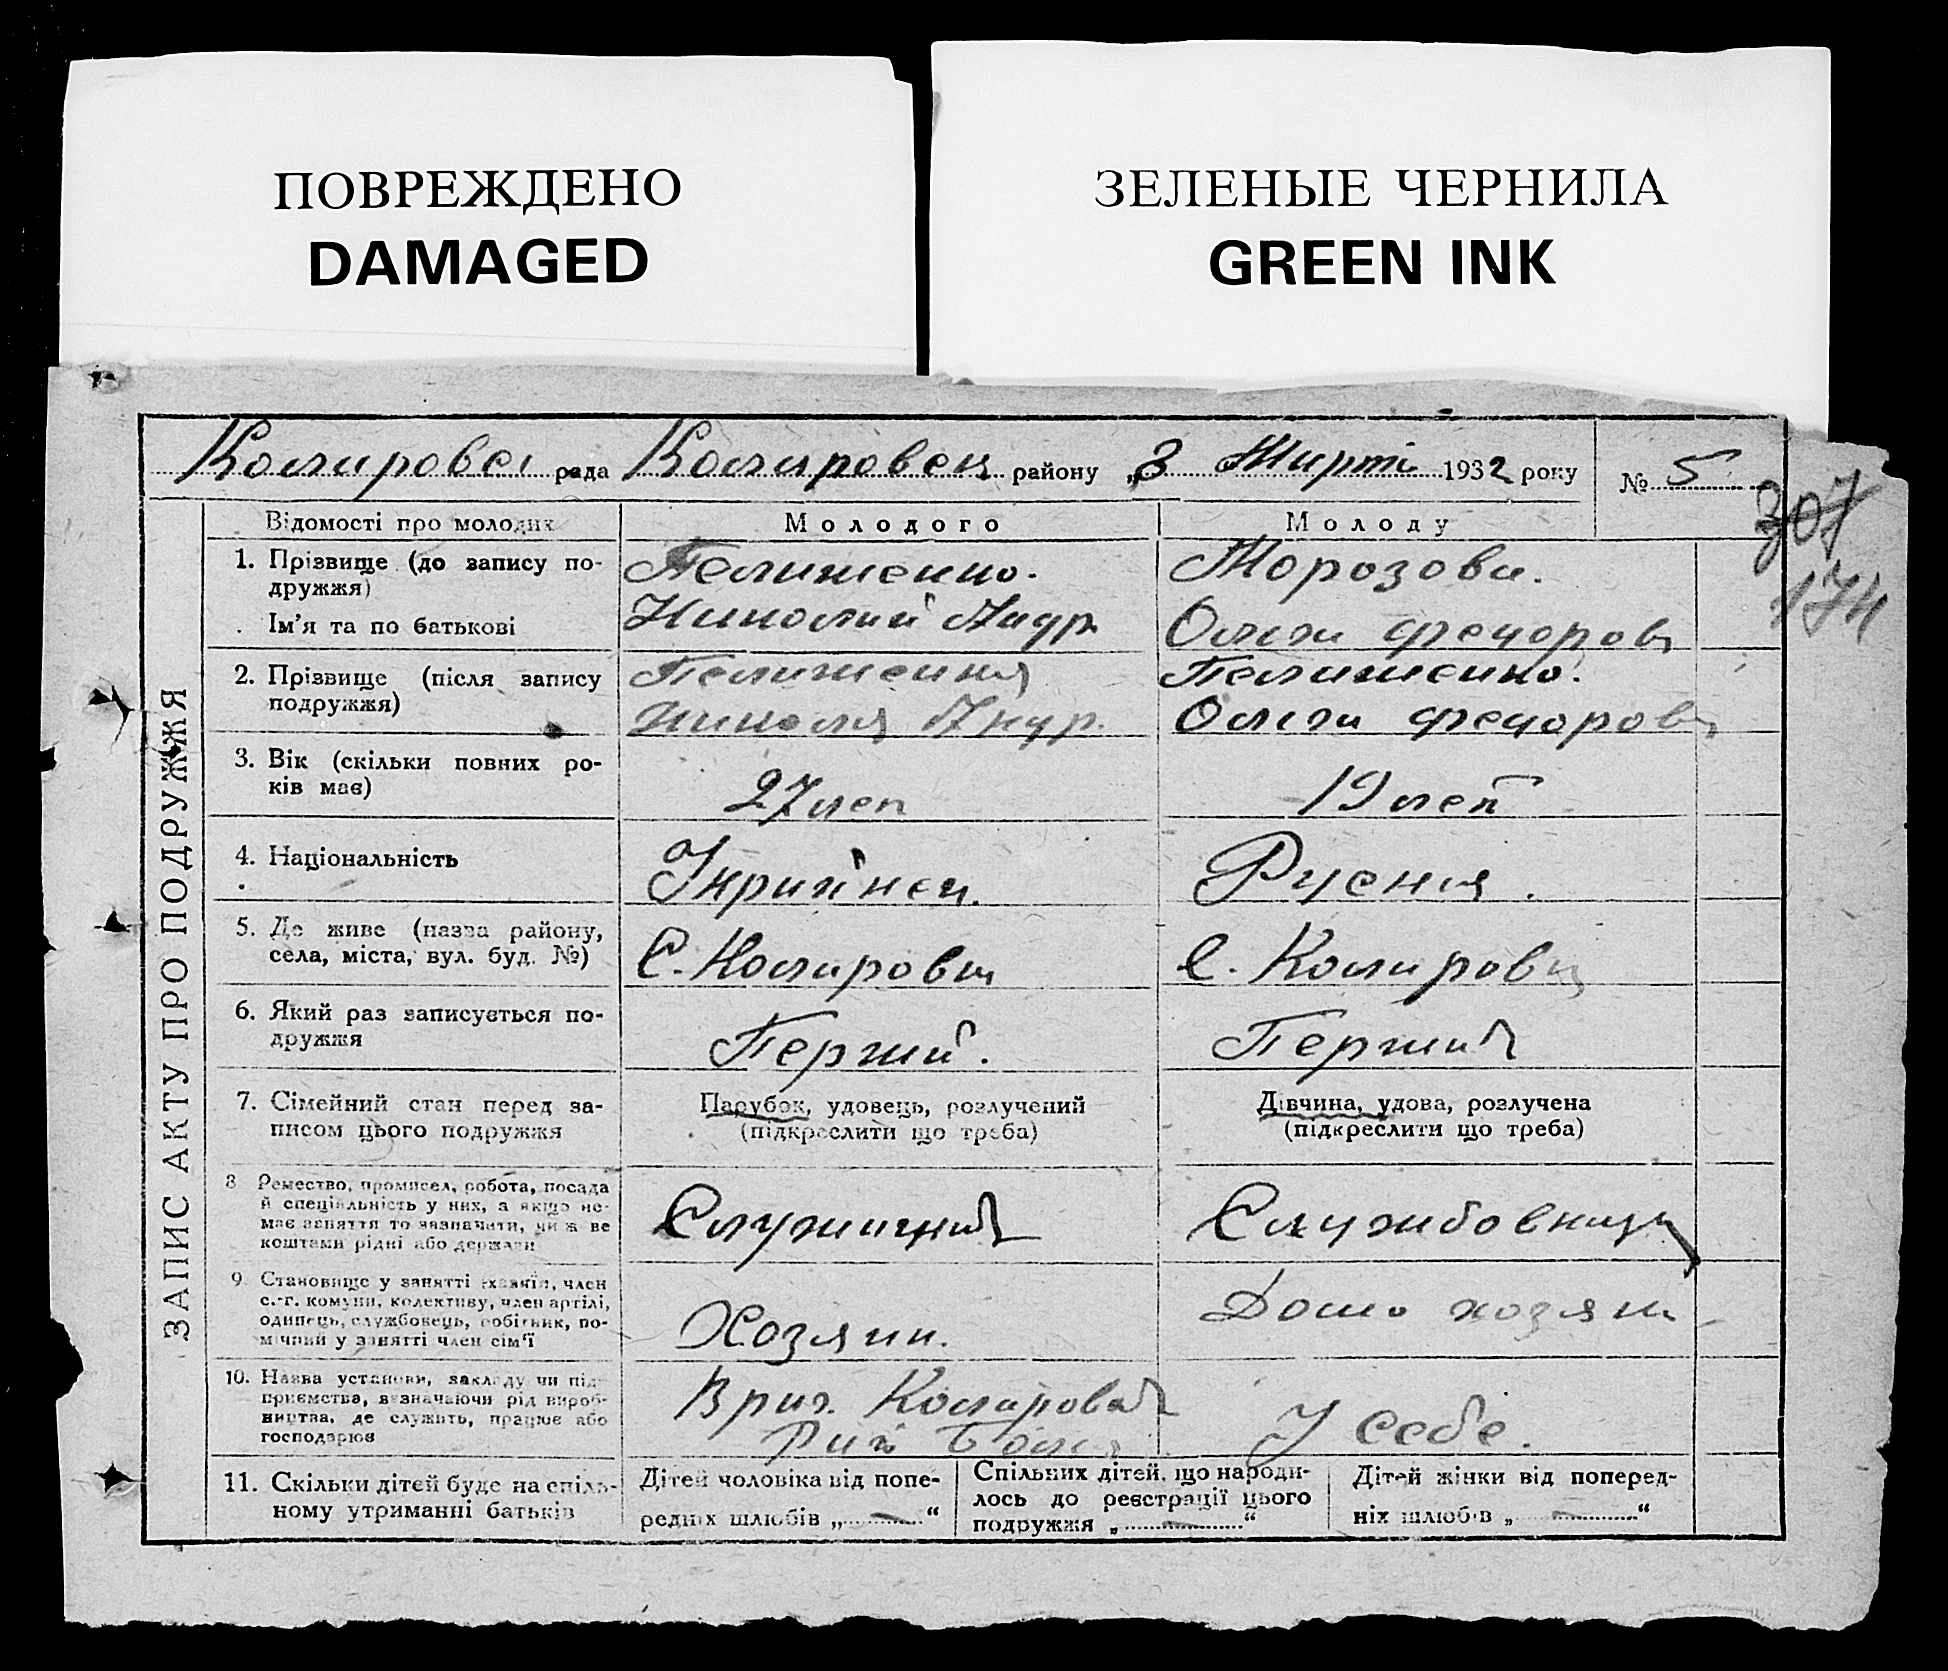 ПОВРЕЖДЕНО
DAMAGED
ЗЕЛЕНЫЕ ЧЕРНИЛА
GREEN INK
рада району „3 1932 року № 5
307
174
ЗАПИС АКТУ ПРО ПОДРУЖЖЯ
Відомості про молодих Молодого Молоду
1. Прізвище (до запису по-
дружжя)
Морозова.
Ім'я та по батькові
Николай Андр. Ольга Федоров
2. Прізвище (після запису
подружжя)
Ольга Федоров
3. Вік (скільки повних ро-
ків має)
27 лет 19 лет
4. Національність
Украйнец. Руская.
5. Де живе (назва району,
села, міста, вул. буд. №)
с. с.
6. Який раз записується по-
дружжя
Первий. Первий
7. Сімейний стан перед за-
писом цього подружжя
Парубок, удовець, розлучений
(підкреслити що треба)
Дівчина, удова, розлучена
(підкреслити що треба)
8 Ремество, промисел, робота, посада
й спеціяльність у них, а якщо не-
має заняття то зазначити, чиїж ве
коштами рідні або держави
Служащий
9 Становище у занятті (хазяїн, член
с.-г. комуни, колективу, член артілі,
одинець, службовець, робітник, по-
мічний у занятті член сім'ї
Хозяин. Дома хозяй
10. Назва установи, закладу чи під-
приємства, визначаючи рід вироб-
ництва, де служить, працює або
господарює
У себе.
11. Скільки дітей буде на спіль-
ному утриманні батьків
Дітей чоловіка від попе-
редніх шлюбів „ — “
Спільних дітей, що народи-
лось до реєстрації цього
подружжя „ — “
Дітей жінки від поперед-
ніх шлюбів „ — “